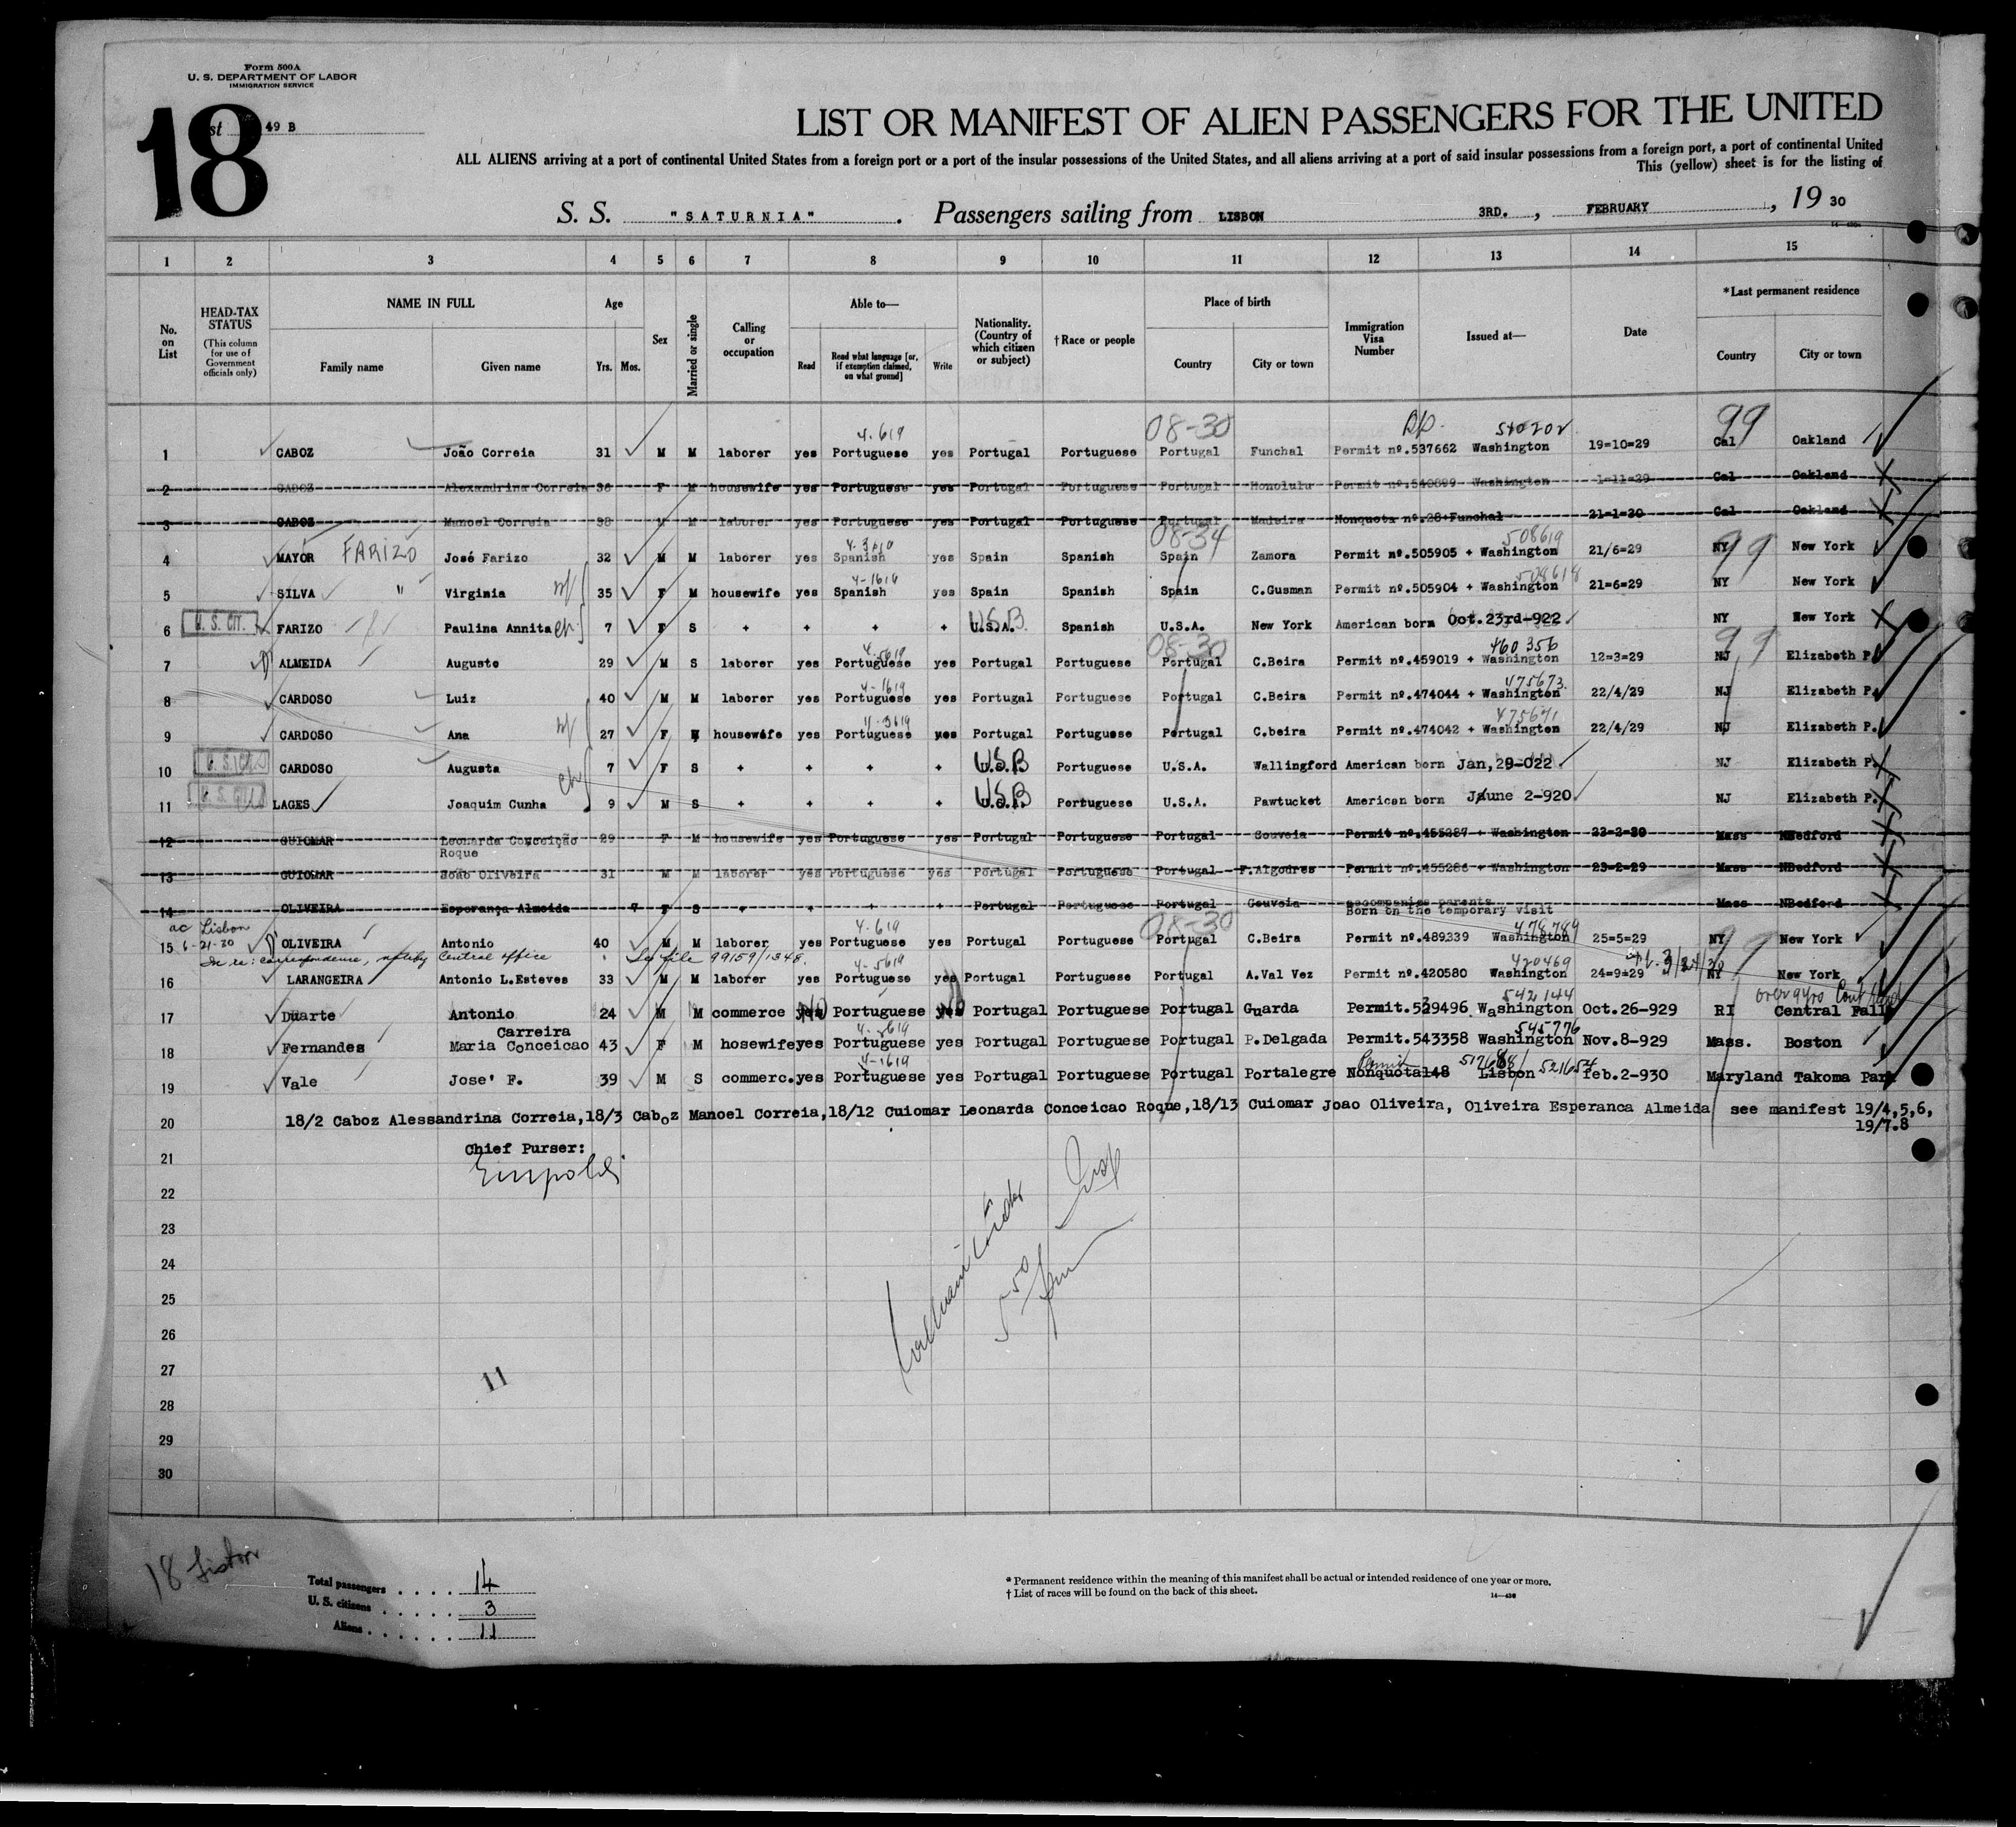 Form 500A
U. S. DEPARTMENT OF LABOR
IMMIGRATION SERVICE
18
49 B
LIST OR MANIFEST OF ALIEN PASSENGERS FOR THE UNITED
ALL ALIENS arriving at a port of continental United States from a foreign port or a port of the insular possessions of the United States, and all aliens arriving at a port of said insular possessions from a foreign port, a port of continental United
This (yellow) sheet is for the listing of
S. S. "SATURNIA". Passengers sailing from LISBON 3RD. , FEBRUARY , 19 30
1 2 3 4 5 6 7 8 9 10 11 12 13 14 15
No. on List
HEAD-TAX STATUS (This column for use of Government officials only)
NAME IN FULL Family name Given name
Age Yrs. Mos.
Sex
Married or single
Calling or occupation
Able to— Read Read what language [or, if exemption claimed, on what ground] Write
Nationality. (Country of which citizen or subject)
†Race or people
Place of birth Country City or town
Immigration Visa Number
Issued at—
Date
*Last permanent residence Country City or town
4-619 08-30 99
1 CABOZ João Correia 31 M M laborer yes Portuguese yes Portugal Portuguese Portugal Funchal Permit nº.537662 Washington 19=10=29 Cal Oakland
2 CABOZ Alexandrina Correia 36 F M housewife yes Portuguese yes Portugal Portuguese Portugal Honolulu Permit nº.540899 Washington 1-11=29 Cal Oakland
3 CABOZ Manoel Correia 38 M M laborer yes Portuguese yes Portugal Portuguese Portugal Madeira Nonquota nº.28 Funchal 21-1-30 Cal Oakland
08-34 508619
4 MAYOR FARIZO José Farizo 32 M M laborer yes Spanish yes Spain Spanish Spain Zamora Permit nº.505905 + Washington 21/6=29 NY New York
4-1616 508618
5 SILVA " Virginia 35 F M housewife yes Spanish yes Spain Spanish Spain C.Gusman Permit nº.505904 + Washington 21=6=29 NY New York
6 U. S. CIT. FARIZO Paulina Annita 7 F S + + + + U.S.A. Spanish U.S.A. New York American born Oct.23rd-922 NY New York
08-30 460356 99
7 ALMEIDA Augusto 29 M S laborer yes Portuguese yes Portugal Portuguese Portugal C.Beira Permit nº.459019 + Washington 12=3=29 NJ Elizabeth P.
4-1619 475673
8 CARDOSO Luiz 40 M M laborer yes Portuguese yes Portugal Portuguese Portugal C.Beira Permit nº.474044 + Washington 22/4/29 NJ Elizabeth P.
475671
9 CARDOSO Ana 27 F M housewife yes Portuguese yes Portugal Portuguese Portugal C.beira Permit nº.474042 + Washington 22/4/29 NJ Elizabeth P.
10 CARDOSO Augusta 7 F S + + + + U.S.B Portuguese U.S.A. Wallingford American born Jan,29-022 NJ Elizabeth P.
11 LAGES Joaquim Cunha 9 M S + + + + U.S.B Portuguese U.S.A. Pawtucket American born June 2-920 NJ Elizabeth P.
12 GUIOMAR Leonarda Conceição Roque 29 F M housewife yes Portuguese yes Portugal Portuguese Portugal Gouveia Permit nº.455287 + Washington 23=2=29 Mass NBedford
13 GUIOMAR João Oliveira 31 M M laborer yes Portuguese yes Portugal Portuguese Portugal F.Algodres Permit nº.455286 + Washington 23=2=29 Mass NBedford
14 OLIVEIRA Esperança Almeida 7 F S + + + + Portugal Portuguese Portugal Gouveia accompanies parents Born on the temporary visit Mass NBedford
Lisbon 4-619 08-30 478789
15 6-21-30 OLIVEIRA Antonio 40 M M laborer yes Portuguese yes Portugal Portuguese Portugal C.Beira Permit nº.489339 Washington 25=5=29 NY New York
In re: correspondence, notify Central office See file 99159/1348.
4-5619 420469
16 LARANGEIRA Antonio L.Esteves 33 M M laborer yes Portuguese yes Portugal Portuguese Portugal A.Val Vez Permit nº.420580 Washington 24=9=29 NY New York
542144
17 Duarte Antonio 24 M M commerce No Portuguese No Portugal Portuguese Portugal Guarda Permit.539496 Washington Oct.26-929 RI Central Falls
545776
18 Fernandes Carreira Maria Conceicao 43 F M hosewife yes Portuguese yes Portugal Portuguese Portugal P.Delgada Permit.543358 Washington Nov.8-929 Mass. Boston
4-1619 Permit
19 Vale Jose' F. 39 M S commerc. yes Portuguese yes Portugal Portuguese Portugal Portalegre Nonquota148 Lisbon feb.2-930 Maryland Takoma Park
20 18/2 Caboz Alessandrina Correia,18/3 Caboz Manoel Correia,18/12 Cuiomar Leonarda Conceicao Roque,18/13 Cuiomar Joao Oliveira, Oliveira Esperanca Almeida see manifest 19/4,5,6,
19/7.8
21 Chief Purser:
22
23
24
25
26
27
28
29
30
11
18 Lisbon
Total passengers . . . . 14
U. S. citizens . . . . . 3
Aliens . . . . . . 11
* Permanent residence within the meaning of this manifest shall be actual or intended residence of one year or more.
† List of races will be found on the back of this sheet.
14—438